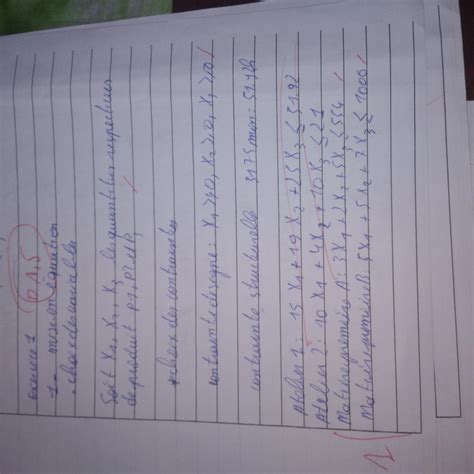 Exercice 1 61,5
1- mise en équation
- choix des variables
Soit X1, X2, X3 les quantités respectives
de produit P1, P2 et P3
* choix des contraintes
contrainte de signe: X1 ≥ 0, X2 ≥ 0, X3 ≥ 0
contrainte structurelle
Atelier 1: 15 X1 + 19 X2 + 25 X3 ≤ 5192
Atelier 2: 10 X1 + 4 X2 + 10 X3 ≤ 21
Matière première A: 3X1 + 2X2 + 5X3 ≤ 554
Matière première B: 5X1 + 5X2 + 7X3 ≤ 1006
1